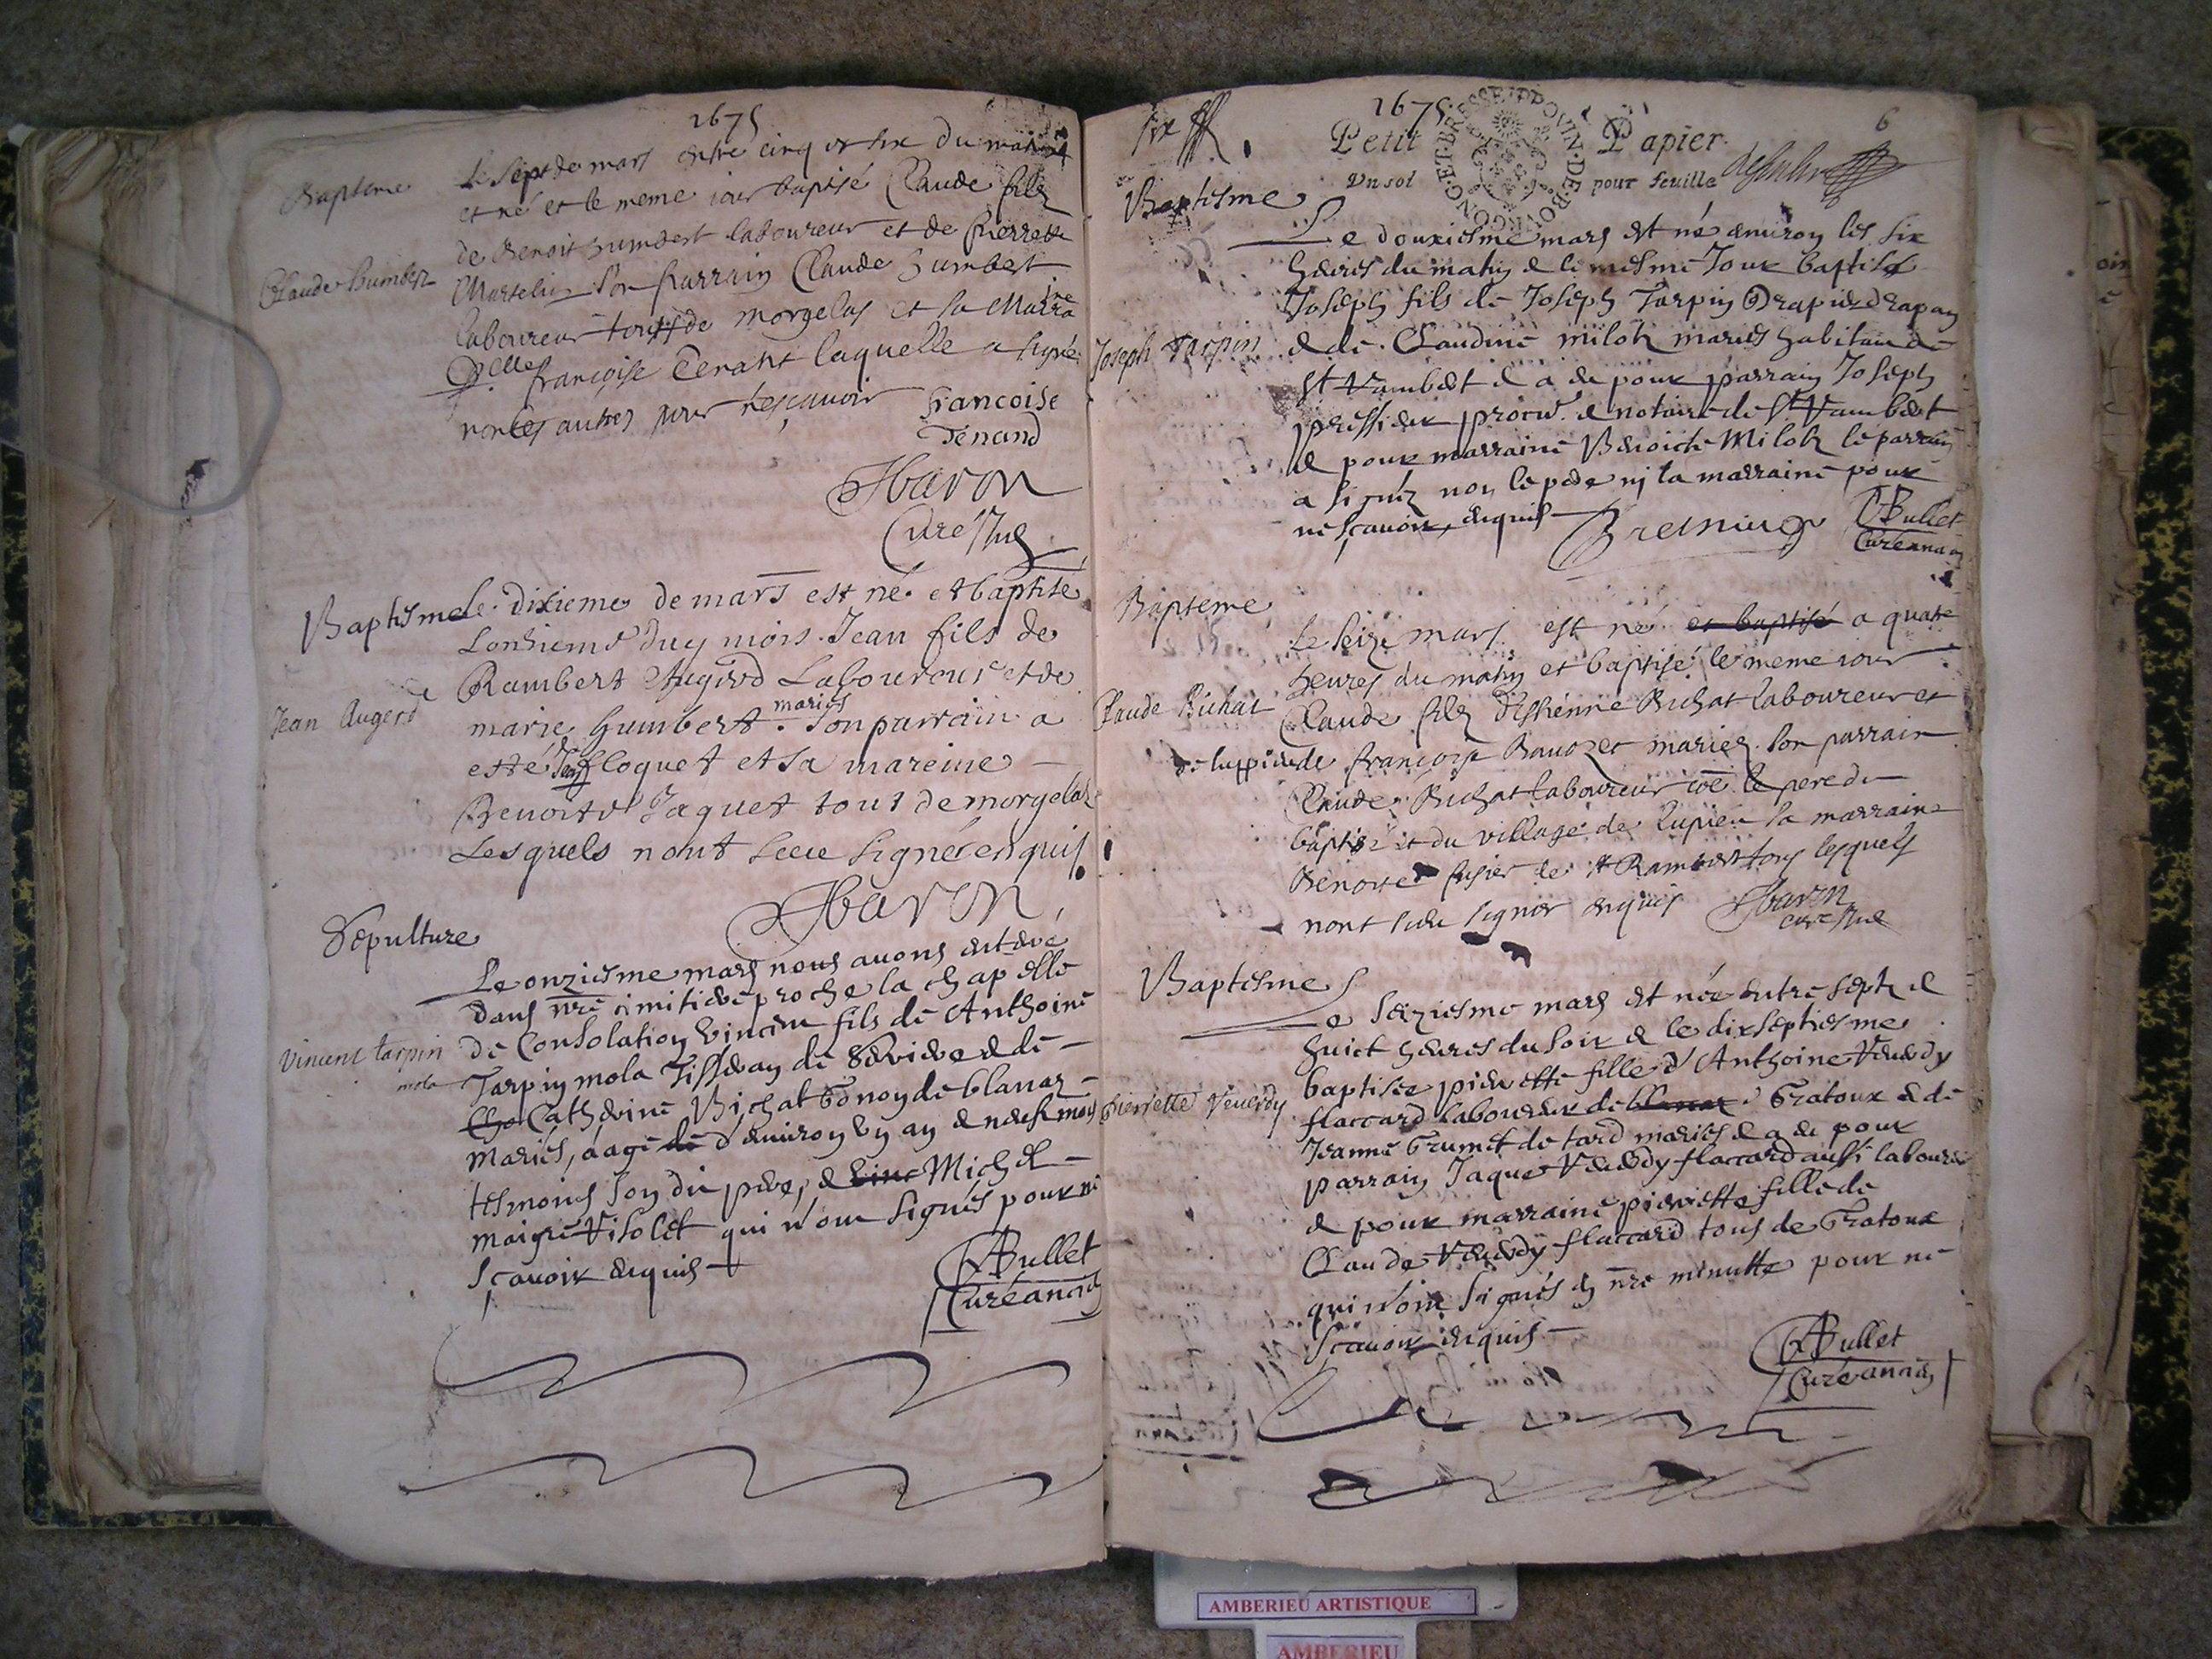 1675
Baptême
Le Sept de mars entre cinq et six du matin
et né et le meme iour baptisé Claude filz
de Benoist humbert laboureur et de pierrette
Claude humbert
Marselin son parrain Claude humbert
laboureur tous de morgelas et sa Marraine
Delle françoise Tenant laquelle a signé
non les autres pour ne sçavoir
francoise
Tenand
Baron
Curé
Baptisme
le dixieme de mars est né et baptise
Lonzieme duy mois Jean fils de
Rambert Augerd Laboureur et de
Jean Augerd
maries
marie humbert. Son parrain a
esté Jean floquet et sa mareine
Benoite Jaquet tout de morgelas
Lesquels nont sceu signé enquis
Baron
Sepulture
Le onziesme mars nous auons enterré
dans nre cimitiere proche la chapelle
de Consolation vincent fils de Anthoine
Vincent tarpin
mola
Tarpin mola Tisseran de Serriere & de
Catherine Bichat Genoy de blanaz
mariés, aagé de d'enuiron vn an & neuf mois
tesmoins son dit pere, & Michel
maigre Visolet qui n'ont signés pour ne
sçauoir enquis
Bullet
Curé
six
1675
6
Petit Papier.
Vn sol pour feuille
GONG·ET·BRESSE PROVIN·DE·BOVR
Baptisme
Le douziesme mars est né enuiron les six
heures du matin & le mesme Jour baptisé
Joseph fils de Joseph Tarpin Drapier drapan
Joseph Tarpin
& de Claudine miloh mariés habitan de
St Rambert & a eu pour parrain Joseph
pressieux procur. & notaire de St Rambert
& pour marraine Benoite Miloh le parrain
a signéz non le pere nj la marraine pour
ne sçauoir, enquis
Bullet
Curé
Bapteme
Le seize mars est né et baptisé a quatre
heures du matin et baptisé le meme iour
Claude Bichat
Claude filz d'Estienne Bichat laboureur et
de luppieu
de françoise Bauoz et mariez son parrain
Claude Bichat laboureur le pere du
baptisé et du village de lupieu sa marraine
Benoite de st Rambert tous lesquels
nont sceu signer enquis
Baron
curé
Baptesme
Le seiziesme mars est née entre sept &
huict heures du soir & le dixseptiesme
baptisée pierrette fille d'Anthoine Veuerdy
Pierrette Veuerdy
flaccard laboureur de blanaz Gratoux & de
Jeanne Grumet de tard mariés & a eu pour
parrain Jaques Veuerdy flaccard aussi laboureur
& pour marraine pierrette fille de
Claude Veuerdy flaccard tous de Gratoux
qui n'ont signés en nre minutte pour ne
sçauoir enquis
Bullet
Curé
AMBERIEU ARTISTIQUE
AMBERIEU